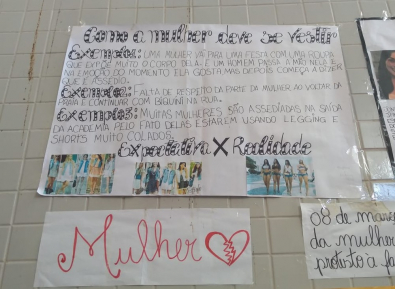 Como a mulher deve se vestir
Exemplos: UMA MULHER VAI PARA UMA FESTA COM UMA ROUPA
QUE EXPÕE MUITO O CORPO DELA. E UM HOMEM PASSA A MÃO NELA E
NA EMOÇÃO DO MOMENTO ELA GOSTA MAS DEPOIS COMEÇA A DIZER
QUE É ASSÉDIO.
Exemplos: FALTA DE RESPEITO DA PARTE DA MULHER AO VOLTAR DA
PRAIA E CONTINUAR COM BIQUÍNI NA RUA.
Exemplos: MUITAS MULHERES SÃO ASSEDIADAS NA SAÍDA
DA ACADEMIA PELO FATO DELAS ESTAREM USANDO LEGGING E
SHORTS MUITO COLADOS.
Expectativa X Realidade
Mulher
08 de março
da mulher
protesto à